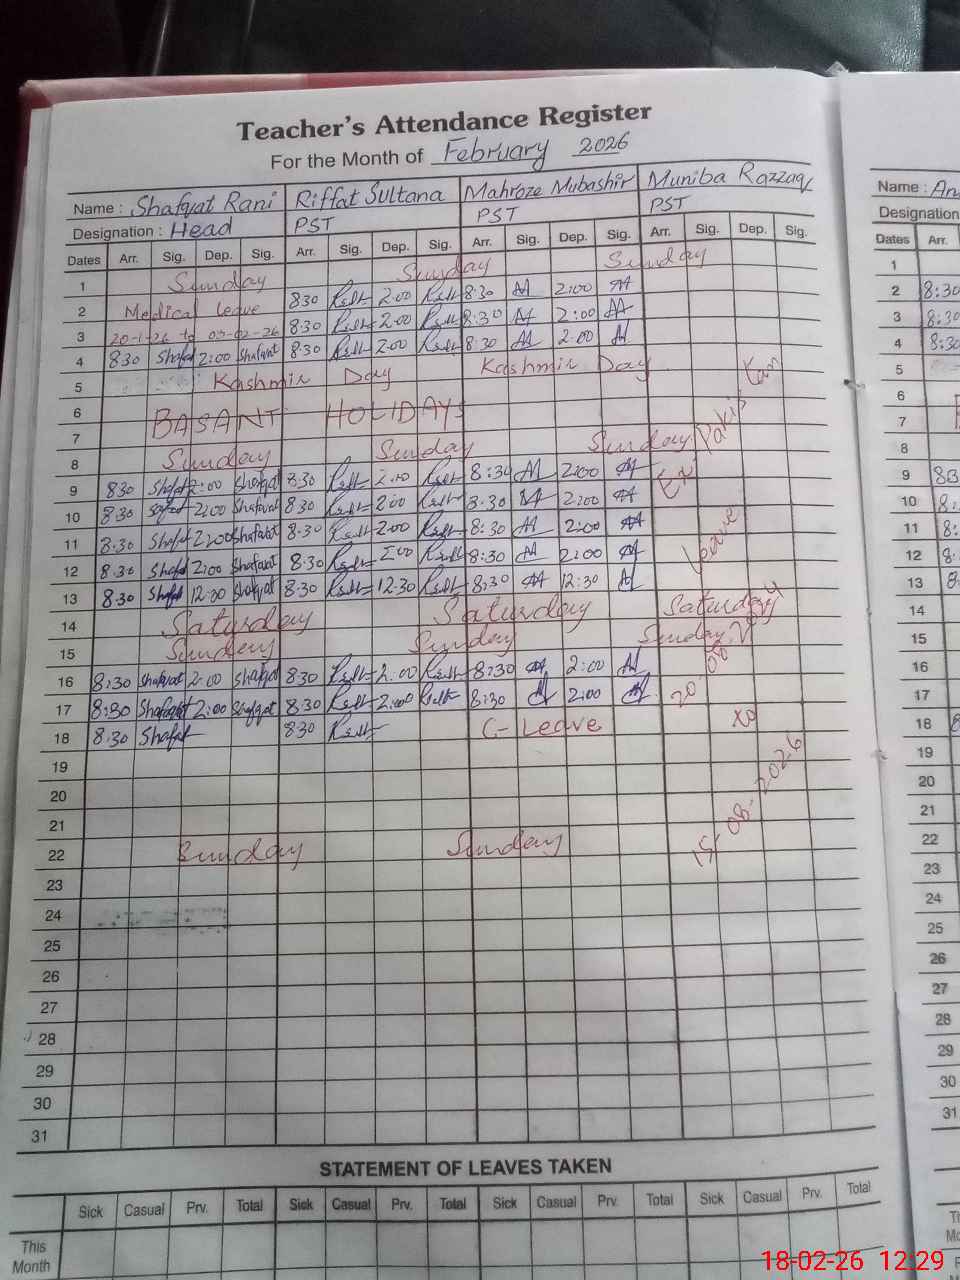 Teacher's Attendance Register
For the Month of February 2026
Name : Shafqat Rani Riffat Sultana Mahroze Mubashir Muniba Razzaq
Designation : Head PST PST PST
Dates Arr. Sig. Dep. Sig. Arr. Sig. Dep. Sig. Arr. Sig. Dep. Sig. Arr. Sig. Dep. Sig.
1 Sunday Sunday Sunday
2 Medical Leave 8:30 2:00 8:30 2:00
3 20-1-26 to 03-02-26 8:30 2:00 8:30 2:00
4 8:30 Shafqat 2:00 Shafqat 8:30 2:00 8:30 2:00
5 Kashmir Day Kashmir Day
6
7 BASANT HOLIDAYS
8 Sunday Sunday Sunday
9 8:30 Shafqat 2:00 Shafqat 8:30 2:00 8:30 2:00
10 8:30 2:00 Shafqat 8:30 2:00 8:30 2:00
11 8:30 Shafqat 2:00 Shafqat 8:30 2:00 8:30 2:00
12 8:30 Shafqat 2:00 Shafqat 8:30 2:00 8:30 2:00
13 8:30 Shafqat 12:30 Shafqat 8:30 12:30 8:30 12:30
14 Saturday Saturday Saturday
15 Sunday Sunday Sunday
16 8:30 Shafqat 2:00 Shafqat 8:30 2:00 8:30 2:00
17 8:30 Shafqat 2:00 Shafqat 8:30 2:00 8:30 2:00
18 8:30 Shafqat 8:30 C-Leave
19
20
21
22 Sunday Sunday
23
24
25
26
27
28
29
30
31
Ex: Pakistan
Leave
to
15-08-2026
STATEMENT OF LEAVES TAKEN
Sick Casual Prv. Total Sick Casual Prv. Total Sick Casual Prv. Total Sick Casual Prv. Total
This
Month
Name : An
Designation
Dates Arr.
1
2 8:30
3 8:30
4 8:30
5
6
7
8
9
10
11
12
13
14
15
16
17
18
19
20
21
22
23
24
25
26
27
28
29
30
31
18-02-26 12:29